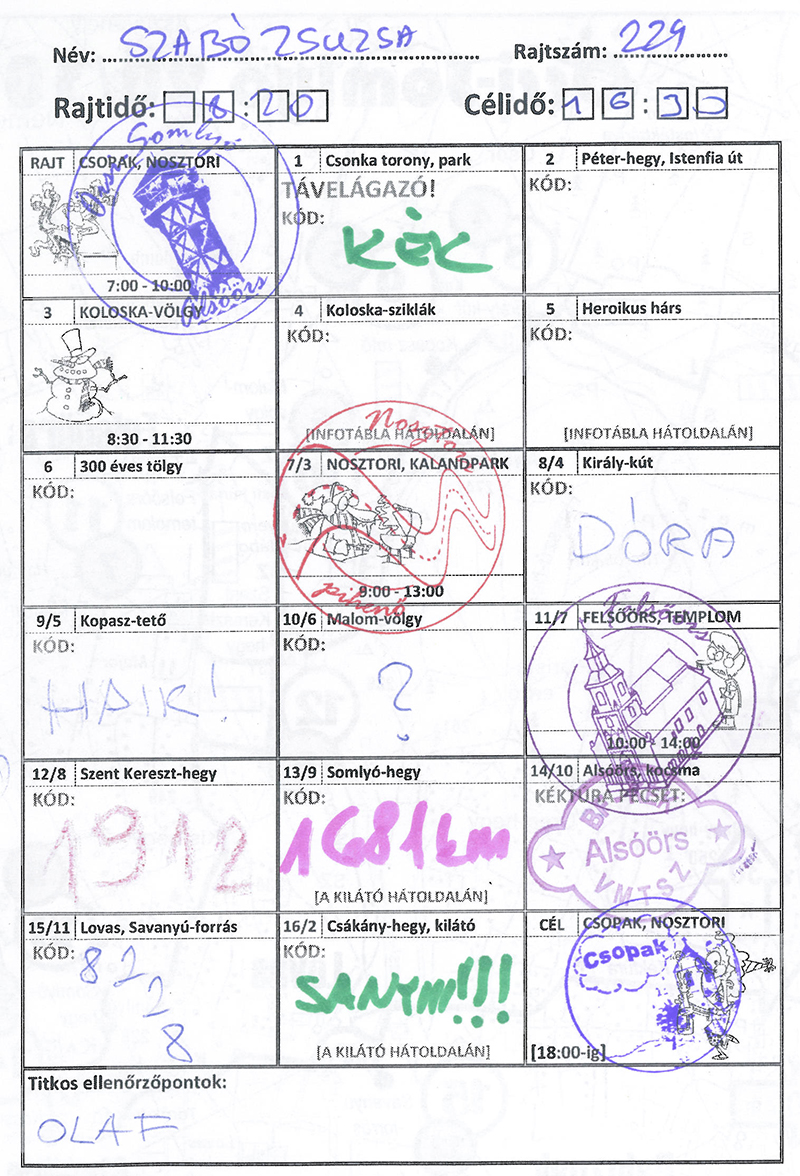 Név: SZABÓ ZSUZSA Rajtszám: 229
Rajtidő: 8:20 Célidő: 16:30
RAJT CSOPAK, NOSZTORI
Somlyó
Alsóörs
7:00 - 10:00
1 Csonka torony, park
TÁVELÁGAZÓ!
KÓD:
KÉK
2 Péter-hegy, Istenfia út
KÓD:
3 KOLOSKA-VÖLGY
8:30 - 11:30
4 Koloska-sziklák
KÓD:
[INFOTÁBLA HÁTOLDALÁN]
5 Heroikus hárs
KÓD:
[INFOTÁBLA HÁTOLDALÁN]
6 300 éves tölgy
KÓD:
7/3 NOSZTORI, KALANDPARK
Nosztori
9:00 - 13:00
pihenő
8/4 Király-kút
KÓD:
DÓRA
9/5 Kopasz-tető
KÓD:
HAIK!
10/6 Malom-völgy
KÓD:
?
11/7 FELSŐÖRS, TEMPLOM
Felsőörs
10:00 - 14:00
12/8 Szent Kereszt-hegy
KÓD:
1912
13/9 Somlyó-hegy
KÓD:
1681km
[A KILÁTÓ HÁTOLDALÁN]
14/10 Alsóörs, kocsma
KÉKTÚRA PECSÉT:
Alsóörs
VMTSZ
15/11 Lovas, Savanyú-forrás
KÓD:
82
2
8
16/2 Csákány-hegy, kilátó
KÓD:
SANYIII!!!
[A KILÁTÓ HÁTOLDALÁN]
CÉL CSOPAK, NOSZTORI
Csopak
[18:00-ig]
Titkos ellenőrzőpontok:
OLAF